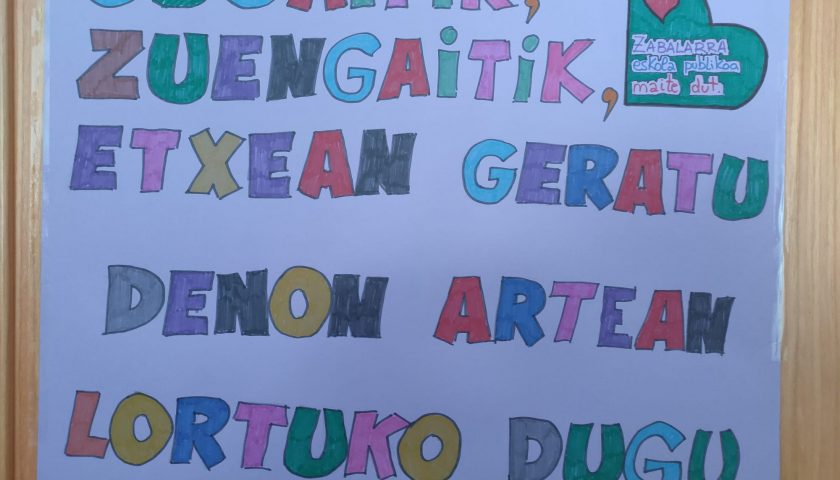 ZUENGAITIK,
ZABALARRA
eskola publikoa
maite dut.
ETXEAN GERATU
DENON ARTEAN
LORTUKO DUGU